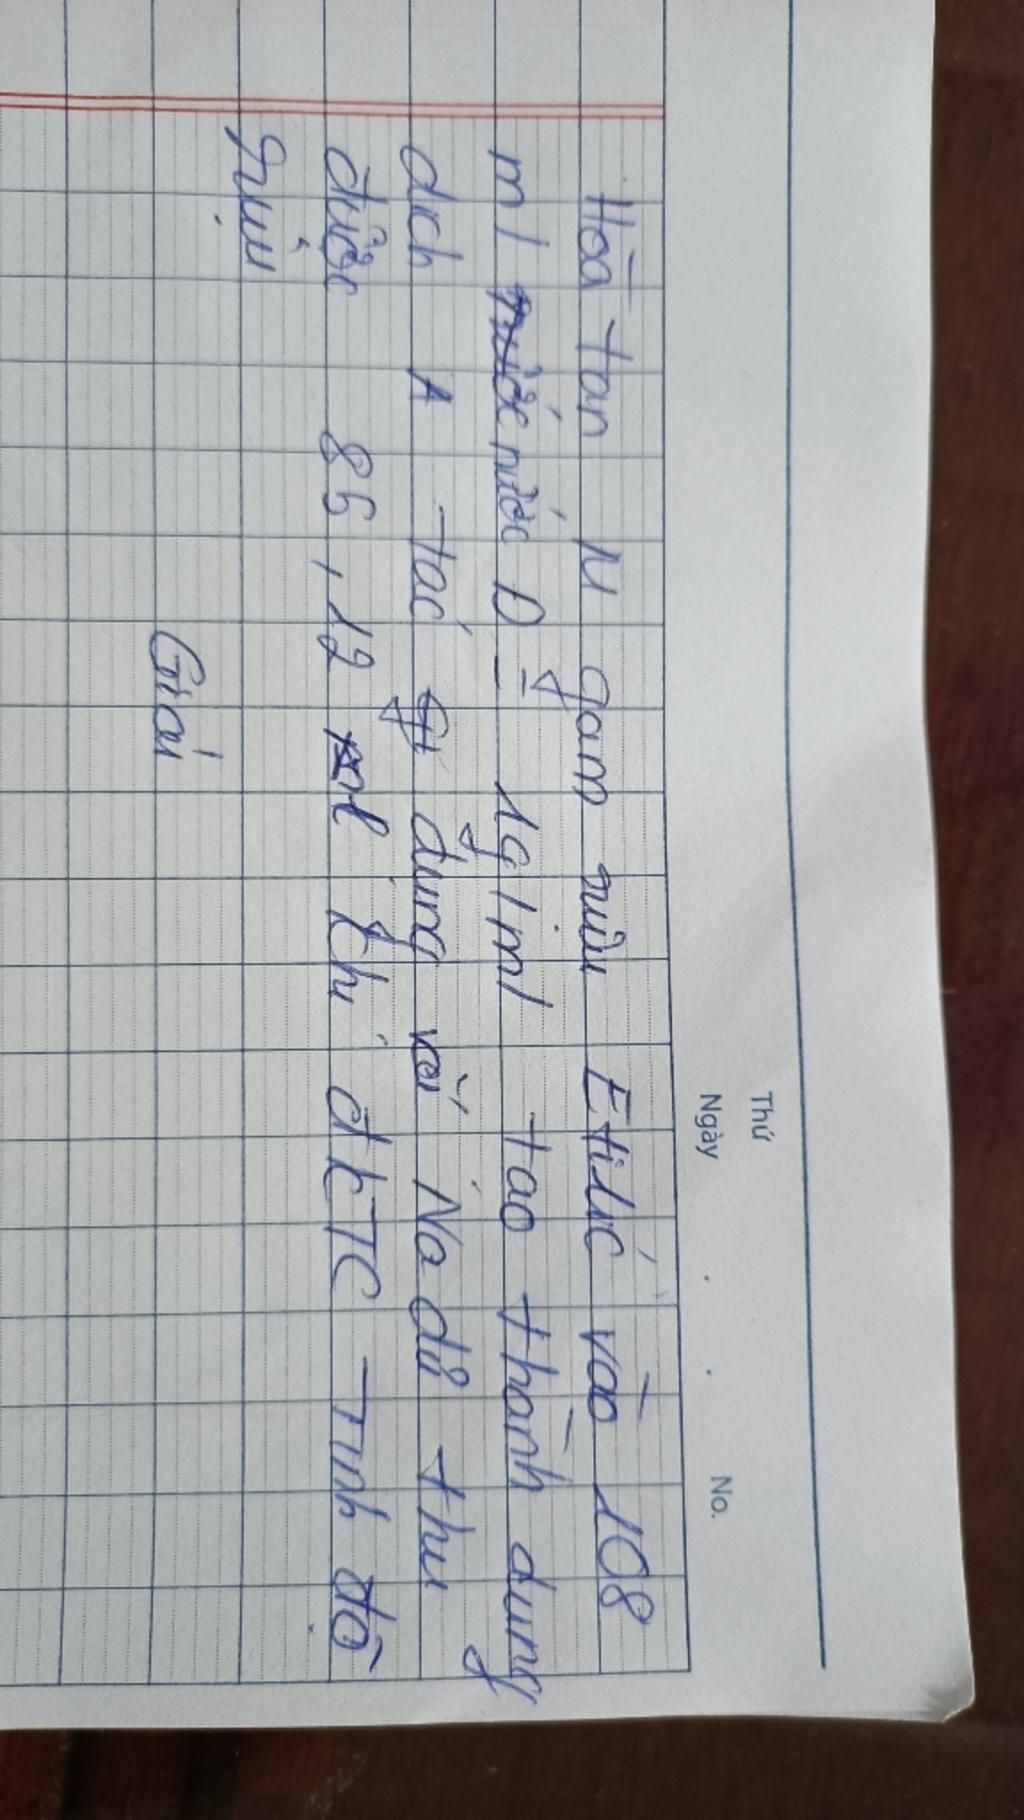 Thứ
Ngày No.
Hòa tan M gam rượu Etilic vào 108
ml nước D = 1g/ml tạo thành dung
dịch A tác dụng với Na dư thu
được 85,12 l khí đktc Tính độ
rượu
Giải